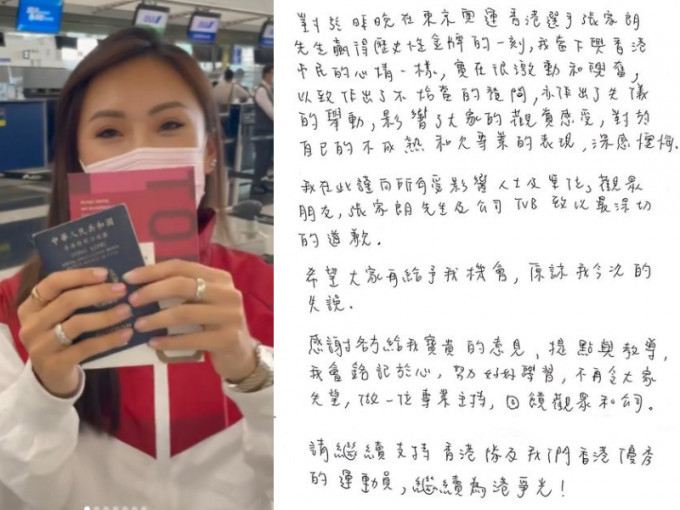 中華人民共和國
HONG KONG
TO
對於昨晚在東京奧運香港選手張家朗
先生贏得歷史性金牌的一刻,我當下與香港
市民的心情一樣,實在很激動和興奮,
以致作出了不恰當的提問,亦作出了失儀
的舉動,影響了大家的觀賞感受,對於
自己的不成熟和欠專業的表現,深感懊悔。
我在此謹向所有受影響人士及單位,觀眾
朋友,張家朗先生及公司TVB致以最深切
的道歉。
希望大家再給予我機會,原諒我今次的
失誤。
感謝各方給我寶貴的意見、提點與教導,
我會銘記於心,努力好好學習,不再令大家
失望,做一位專業主持,回饋觀眾和公司。
請繼續支持香港隊及我們香港優秀
的運動員,繼續為港爭光!